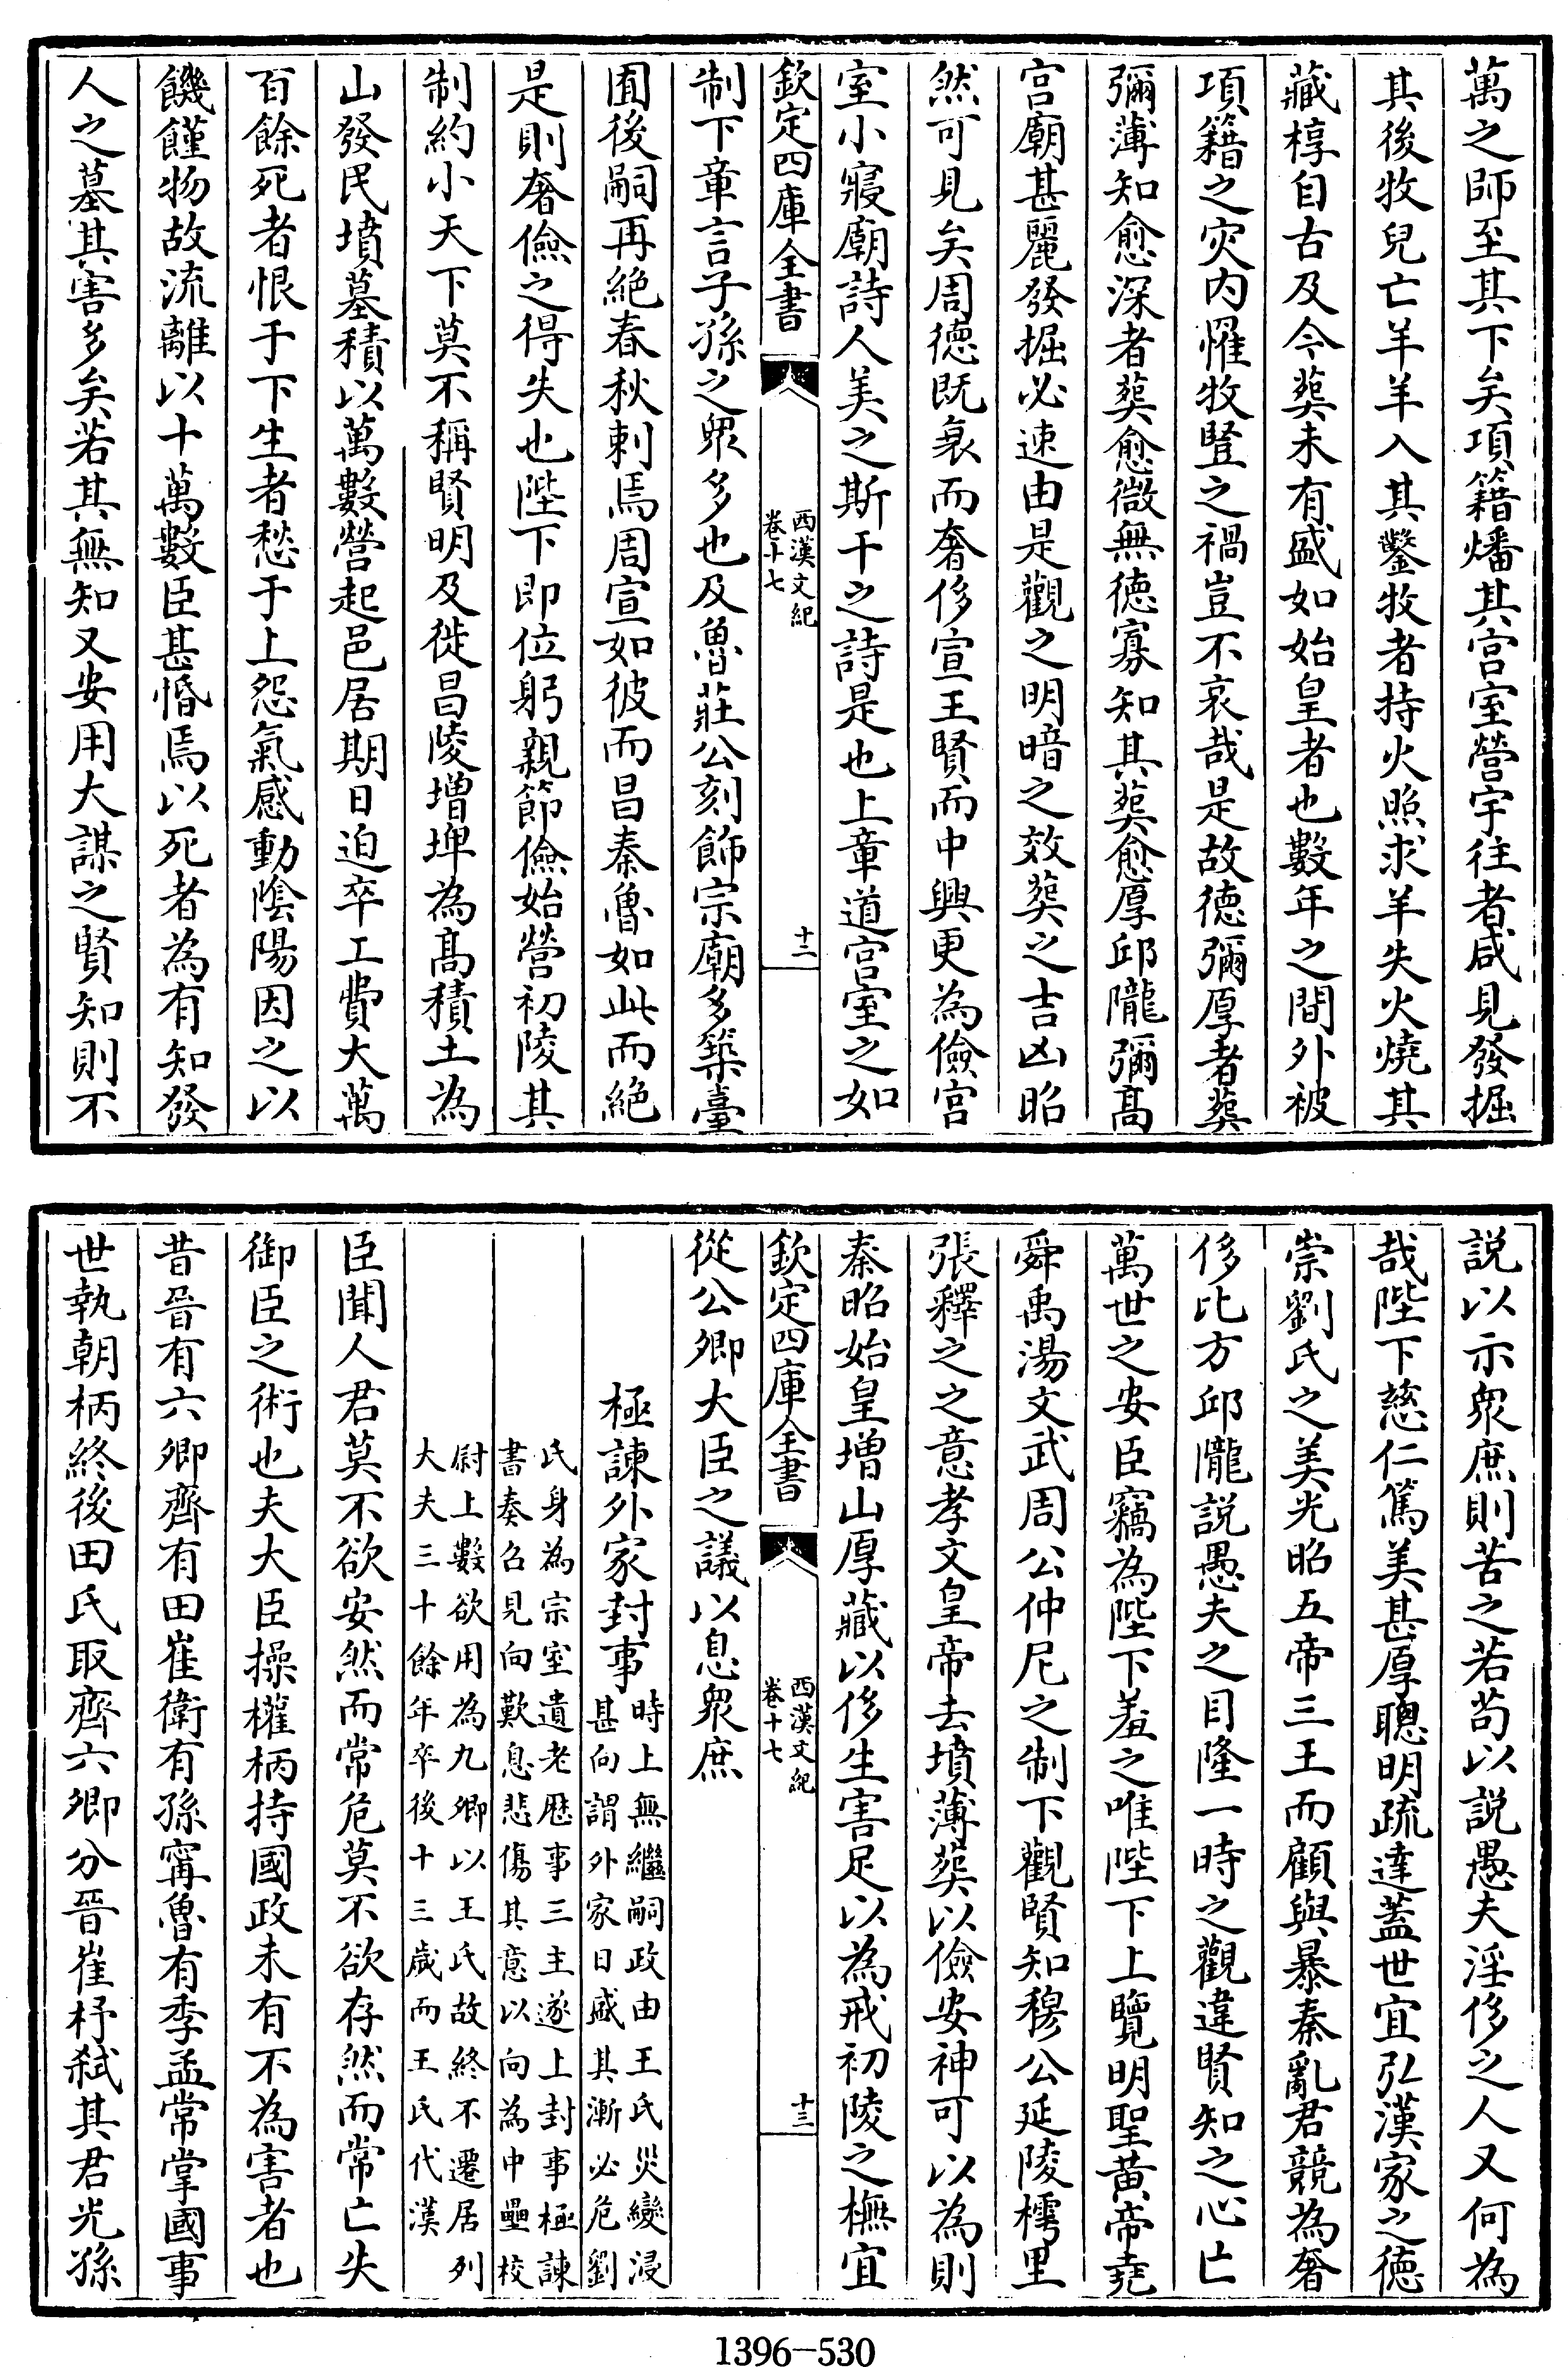 萬之師至其下矣項籍燔其宫室營宇往者咸見發掘
其後牧兒亡羊羊入其鑿牧者持火照求羊失火燒其
藏椁自古及今葬未有盛如始皇者也數年之間外被
項籍之灾内罹牧豎之禍豈不哀哉是故徳彌厚者葬
彌薄知愈深者葬愈微無徳寡知其葬愈厚邱隴彌髙
宫廟甚麗發掘必速由是觀之明暗之效葬之吉凶昭
然可見矣周徳既衰而奢侈宣王賢而中興更為儉宫
室小寢廟詩人美之斯干之詩是也上章道宫室之如
欽定四庫全書
西漢文紀
卷十七
十二
制下章言子孫之衆多也及魯莊公刻飾宗廟多築臺
囿後嗣再絶春秋刺焉周宣如彼而昌秦魯如此而絶
是則奢儉之得失也陛下即位躬親節儉始營初陵其
制約小天下莫不稱賢明及徙昌陵增埤為髙積土為
山發民墳墓積以萬數營起邑居期日迫卒工費大萬
百餘死者恨于下生者愁于上怨氣感動陰陽因之以
饑饉物故流離以十萬數臣甚惛焉以死者為有知發
人之墓其害多矣若其無知又安用大謀之賢知則不
説以示衆庶則苦之若苟以説愚夫淫侈之人又何為
哉陛下慈仁篤美甚厚聰明疏達蓋世宜弘漢家之徳
崇劉氏之美光昭五帝三王而顧與暴秦亂君競為奢
侈比方邱隴説愚夫之目隆一時之觀違賢知之心亡
萬世之安臣竊為陛下羞之唯陛下上覽明聖黄帝堯
舜禹湯文武周公仲尼之制下觀賢知穆公延陵樗里
張釋之之意孝文皇帝去墳薄葬以儉安神可以為則
秦昭始皇增山厚藏以侈生害足以為戒初陵之橅宜
欽定四庫全書
西漢文紀
卷十七
十三
從公卿大臣之議以息衆庶
極諫外家封事
時上無繼嗣政由王氏災變浸
甚向謂外家日盛其漸必危劉
氏身為宗室遺老厯事三主遂上封事極諫
書奏召見向歎息悲傷其意以向為中壘校
尉上數欲用為九卿以王氏故終不遷居列
大夫三十餘年卒後十三歲而王氏代漢
臣聞人君莫不欲安然而常危莫不欲存然而常亡失
御臣之術也夫大臣操權柄持國政未有不為害者也
昔晉有六卿齊有田崔衛有孫甯魯有季孟常掌國事
世執朝柄終後田氏取齊六卿分晉崔杼弑其君光孫
1396—530